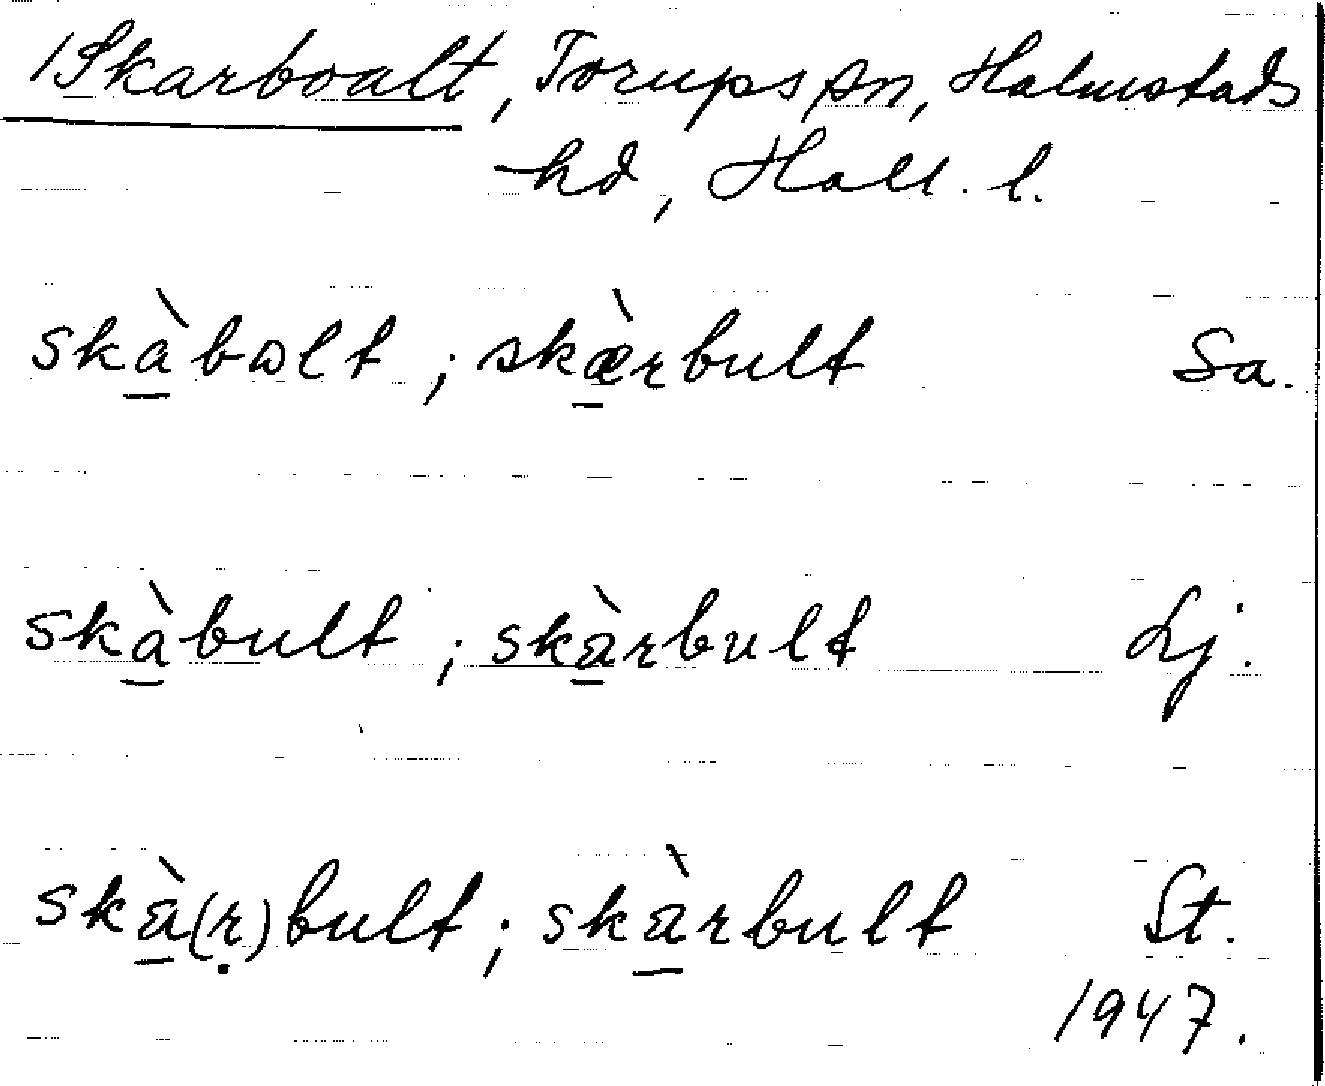 /Skarboalt, Torups sn, Halmstads
hd, Hall. l.
skà̱bωlt ; skæ̱̀rbult Sa.
skà̱bult ; skà̱rbult Lj.
skà̱(ṛ)bult ; skà̱rbult St.
1947.